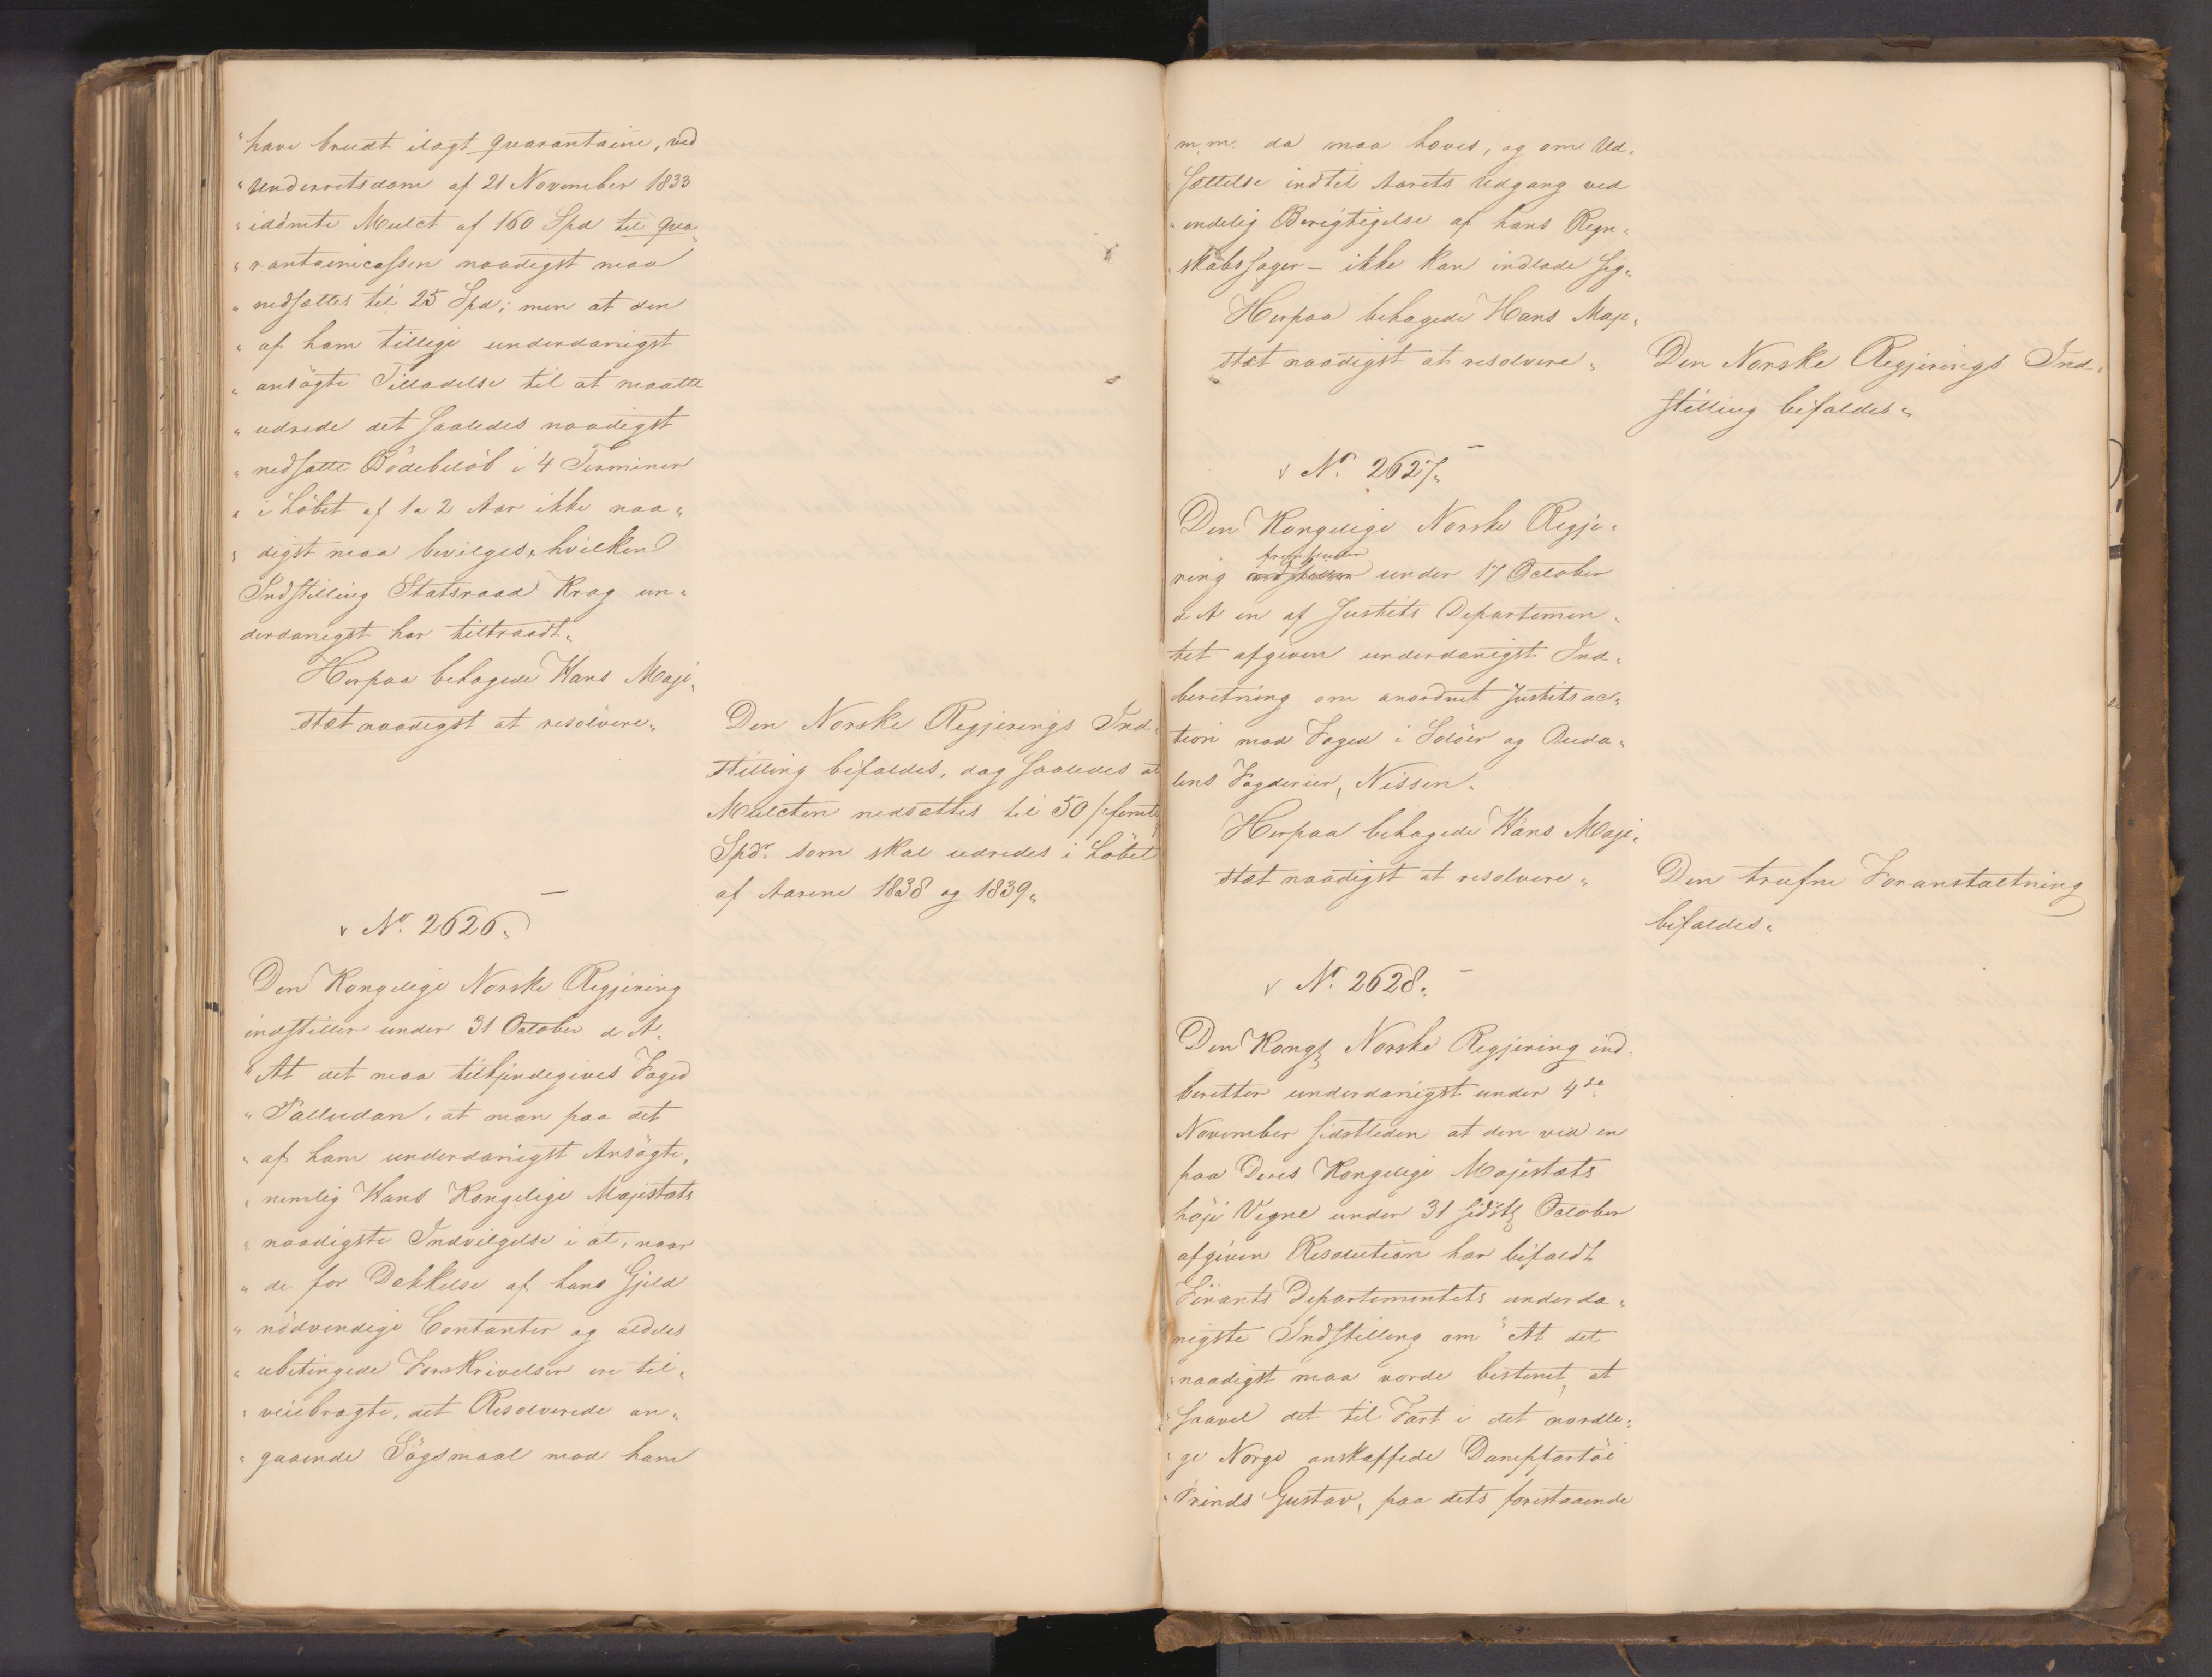 "have brudt ilagt Quarantaine, ved
"Underretsdom af 21 November 1833
"idömte Mulct af 160 Spd til Qua„
"rantainecassen naadigst maa
"nedsættes til 25 Spd; men at den
"af ham tillige underdanigst
"ansögte Tilladelse til at maatte
"udrede det saaledes naadigst
"nedsatte Bödebelöb i 4 Terminer
"i Löbet af 1 a 2 Aar ikke naa„
"digst maa bevilges„ hvilken
Indstilling Statsraad Krag un„
derdanigst har tiltraadt„
Herpaa behagede Hans Maje„
stæt naadigst at resolvere„
Den Norske Regjerings Ind„
stilling bifaldes, dog saaledes at
Mulcten nedsættes til 50 /: femti
Spdr. som skal udredes i Löbet
af Aarene 1838 og 1839„
No. 2626„
Den Kongelige Norske Regjering
indstiller under 31 October d A.
"At det maa tilkjendegives Foged
"Palludan, at man paa det
"af ham underdanigst Ansögte,
"nemlig Hans Kongelige Majestæts
"naadigste Indvilgelse i at, naar
"de for Dækkelse af hans Gjeld
"nödvendige Contanter og aldeles
"ubetingede Forskrivelser ere til„
"veiebragte, det Resolverede an„
"gaaende Sögsmaal mod ham
m.m. da maa hæves, og om Ud„
sættelse indtil Aarets Udgang ved
"endelig Berigtigelse af hans Regn„
skabssager – ikke kan indlade sig„
Herpaa behagede Hans Maje„
stæt naadigst at resolvere„
Den Norske Regjerings Ind„
stilling bifaldes„
No. 2627„
Den Kongelige Norske Regje„
fremsender
ring indstiller under 17 October
d A en af Justits Departemen„
tet afgiven underdanigst Ind„
beretning om anordnet Justitsac„
tion mod Foged i Solöer og Ouda„
lens Fogderier, Nissen„
Herpaa behagede Hans Maje„
stæt naadigst at resolvere„
Den trufne Foranstaltning
bifaldes„
No. 2628„
Den Kongl Norske Regjering ind„
beretter underdanigst under 4de
November sidstleden at den ved en
paa Deres Kongelige Majestæts
höje Vegne under 31 sidstl October
afgiven Resolution har bifaldt
Finants Departementets underda„
nigste Indstilling om "At det
"naadigst maa vorde bestemt, at
"saavel det til Fart i det nordli„
"ge Norge anskaffede Dampfartöi
"Prinds Gustav, paa dets forestaaende